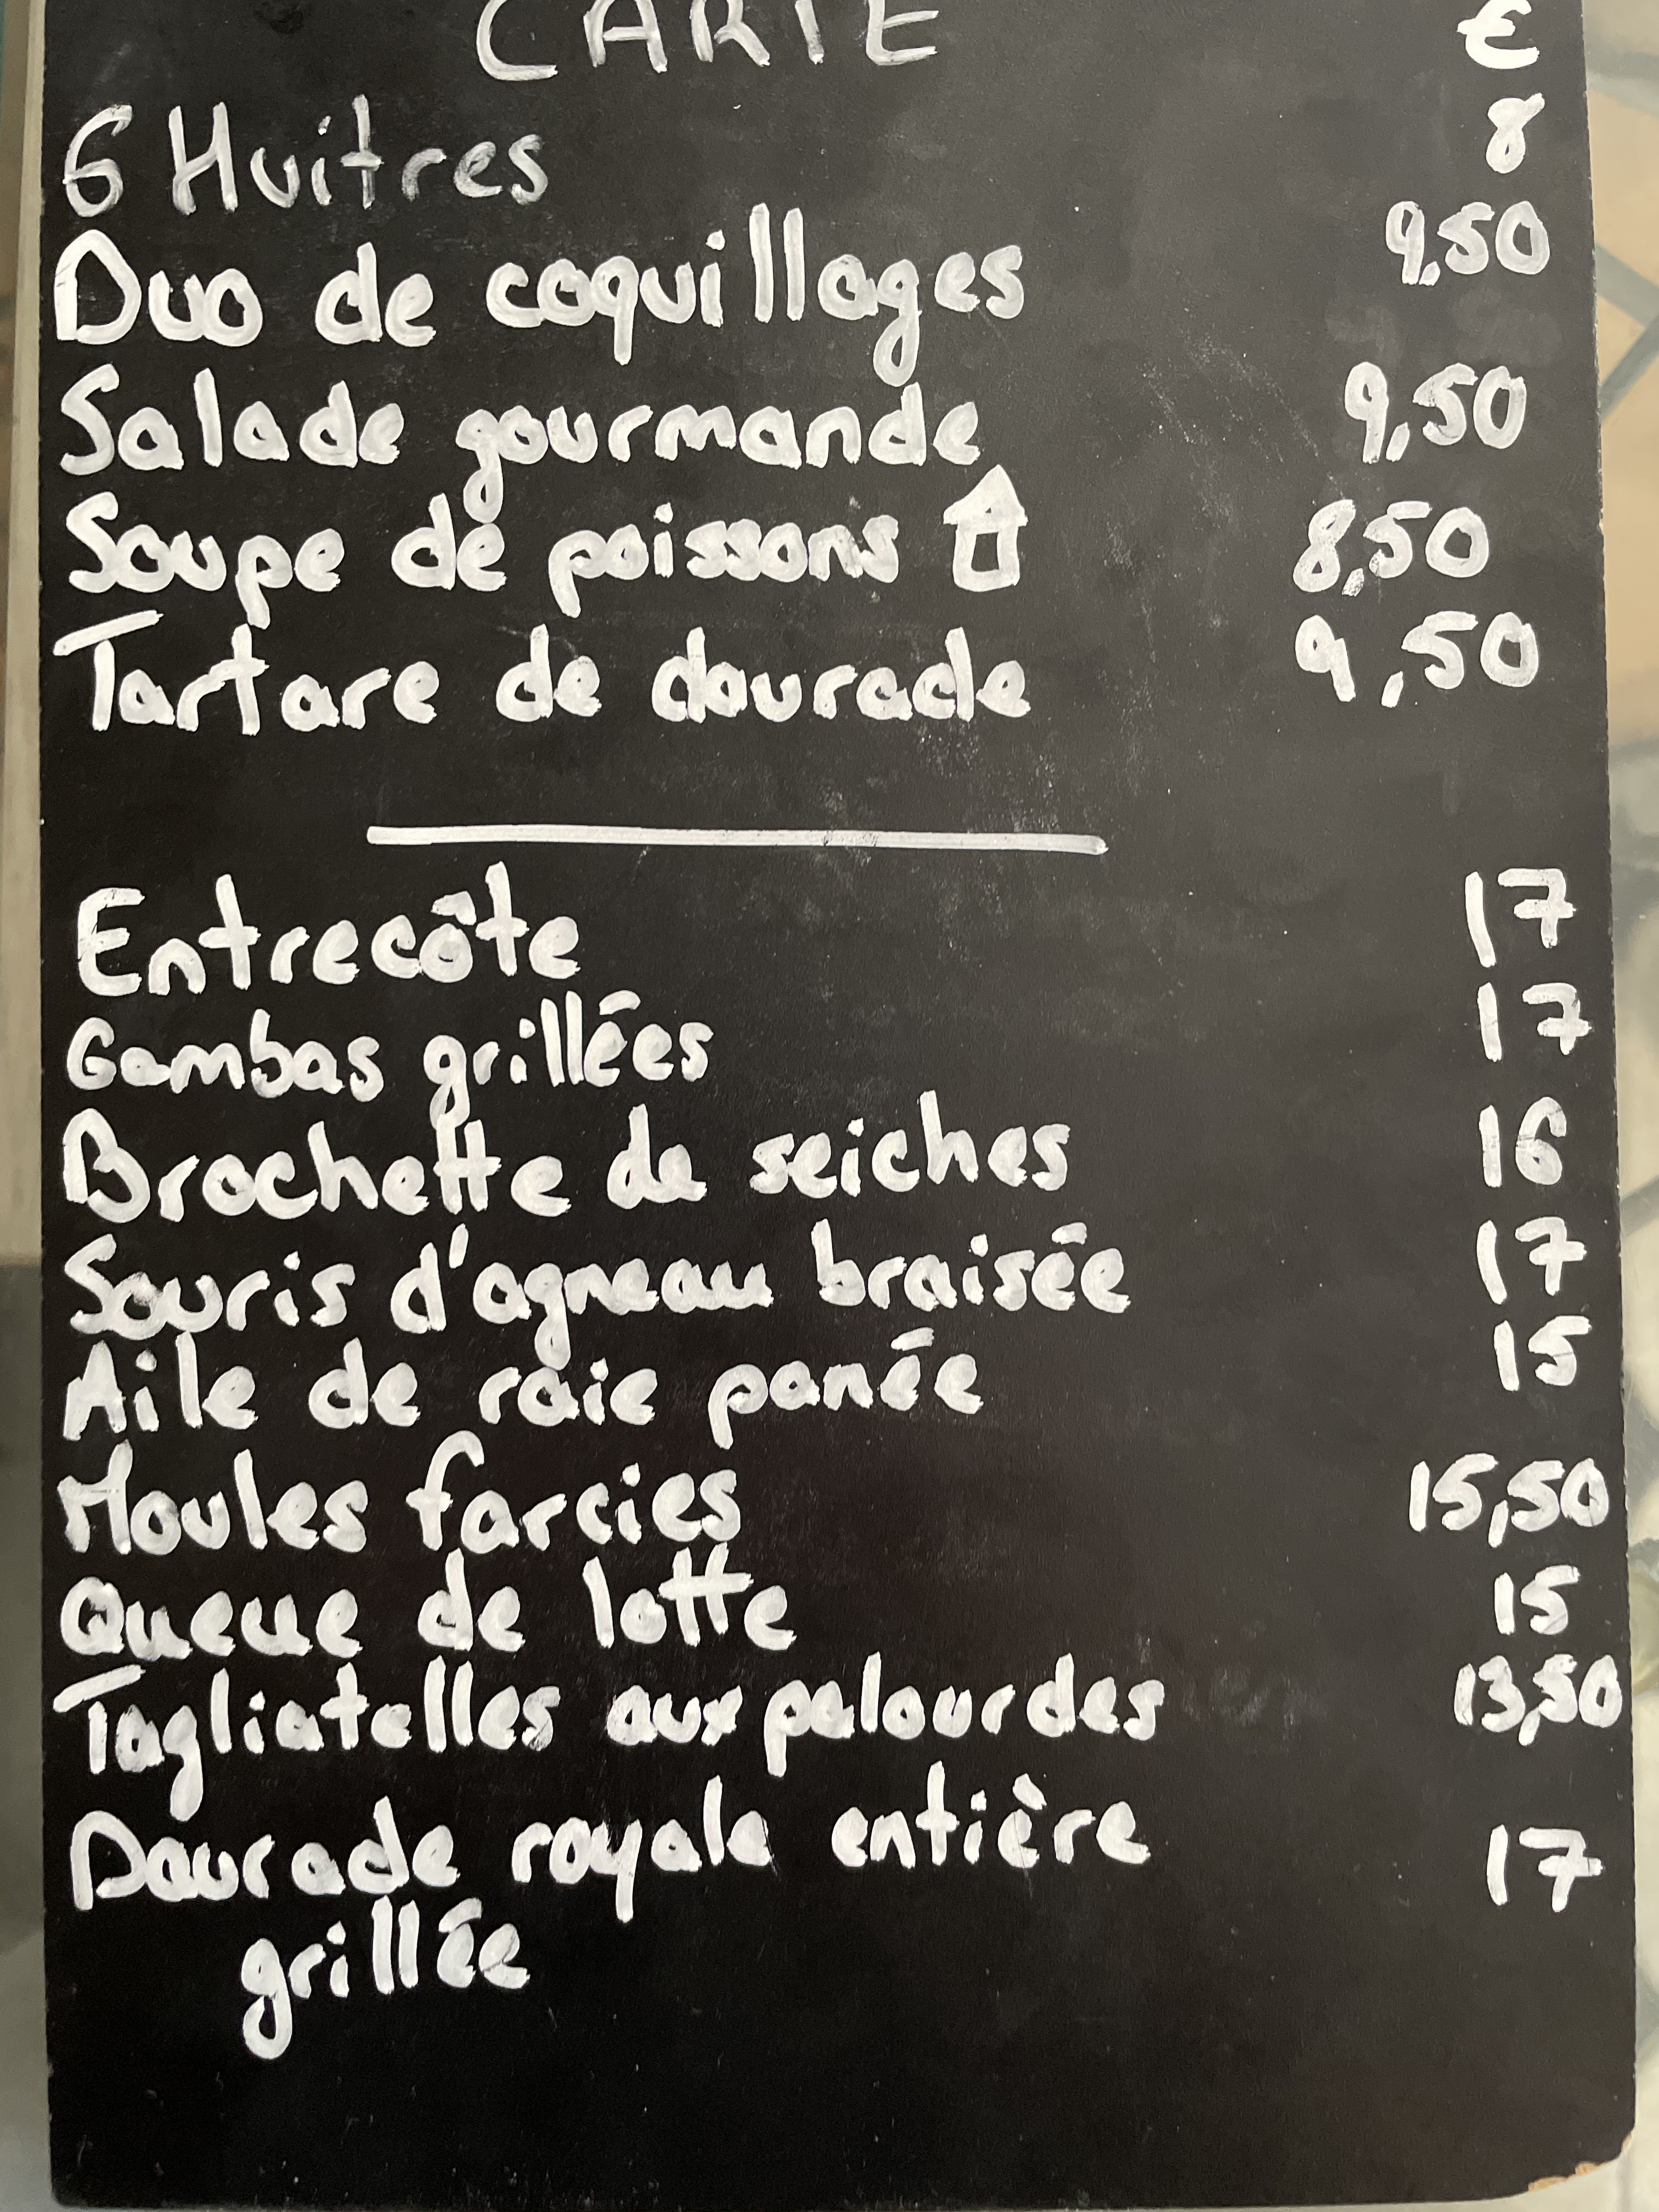 CARTE €
6 Huitres 8
Duo de coquillages 9,50
Salade gourmande 9,50
Soupe de poissons 8,50
Tartare de daurade 9,50
Entrecôte 17
Gambas grillées 17
Brochette de seiches 16
Souris d'agneau braisée 17
Aile de raie panée 15
Moules farcies 15,50
Queue de lotte 15
Tagliatelles aux palourdes 13,50
Daurade royale entière 17
grillée